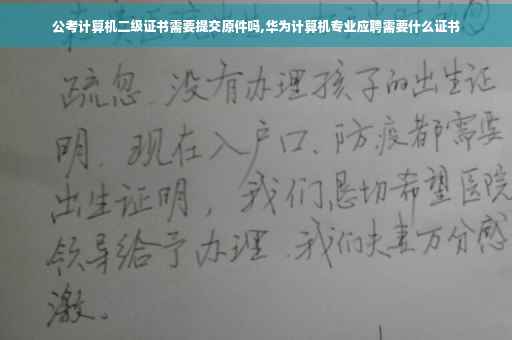 公考计算机二级证书需要提交原件吗,华为计算机专业应聘需要什么证书
疏忽、没有办理孩子的出生证
明、现在入户口、防疫都需要
出生证明，我们恳切希望医院
领导给予办理、我们夫妻万分感
激。